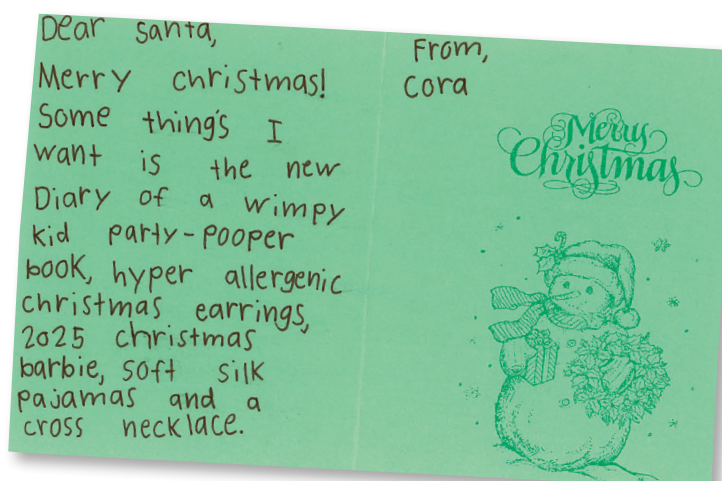 Dear Santa,
Merry christmas!
Some thing's I
want is the new
Diary of a wimpy
kid party-pooper
book, hyper allergenic
christmas earrings,
2025 christmas
barbie, soft silk
pajamas and a
cross necklace.
From,
Cora
Merry
Christmas